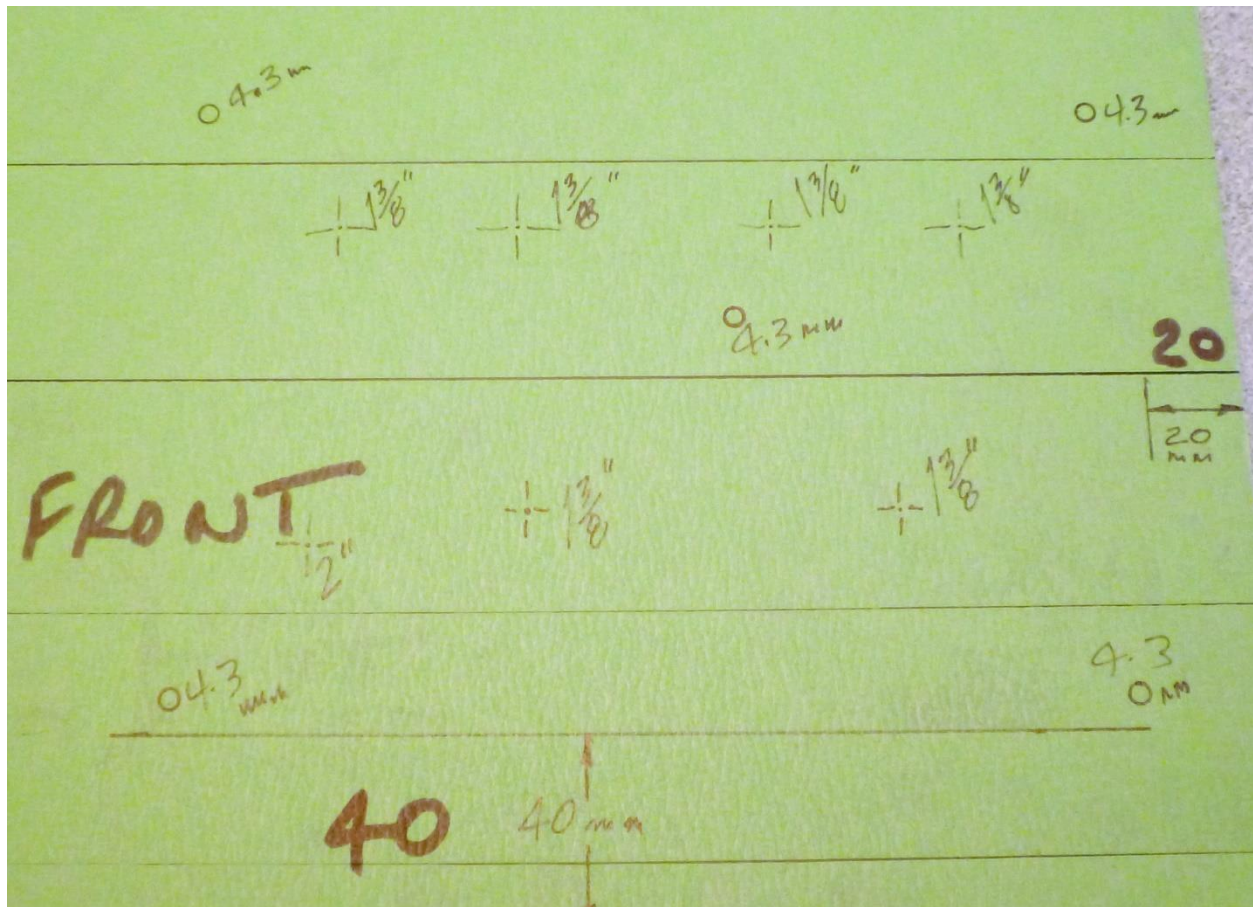 4.3 mm
4.3 mm
1 3/8"
1 3/8"
1 3/8"
1 3/8"
4.3 mm
20
20 mm
FRONT
1 3/8"
1 3/8"
2"
4.3 mm
4.3 mm
40
40 mm